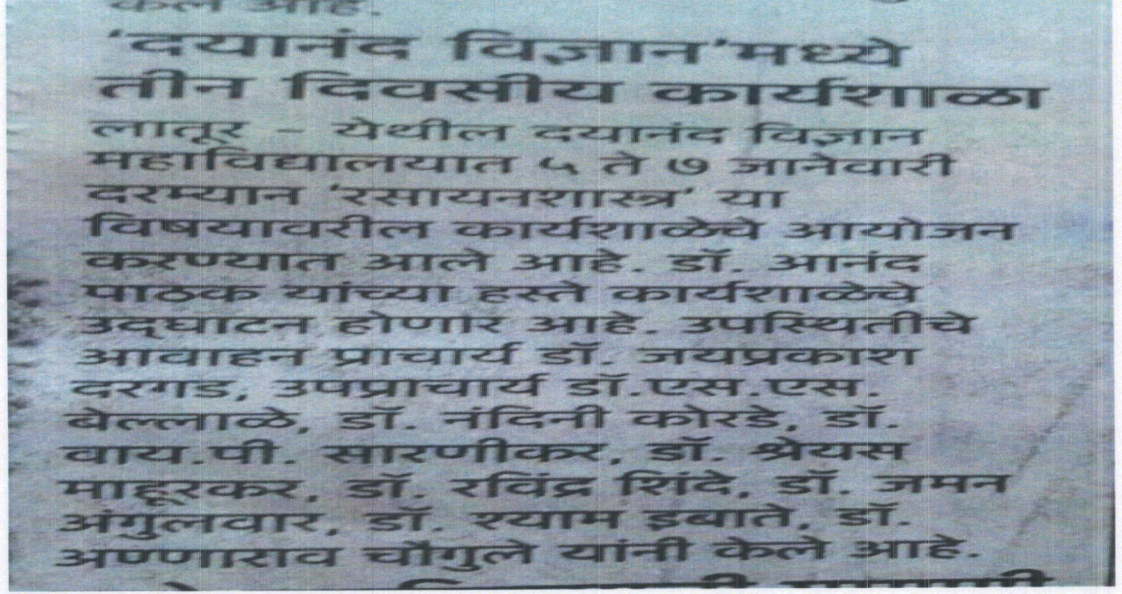 केले आहे.
'दयानंद विज्ञान'मध्ये
तीन दिवसीय कार्यशाळा
लातूर - येथील दयानंद विज्ञान
महाविद्यालयात ५ ते ७ जानेवारी
दरम्यान 'रसायनशास्त्र' या
विषयावरील कार्यशाळेचे आयोजन
करण्यात आले आहे. डॉ. आनंद
पाठक यांच्या हस्ते कार्यशाळेचे
उद्घाटन होणार आहे. उपस्थितीचे
आवाहन प्राचार्य डॉ. जयप्रकाश
दरगड, उपप्राचार्य डॉ.एस.एस.
बेल्लाळे, डॉ. नंदिनी कोरडे, डॉ.
वाय.पी. सारणीकर, डॉ. श्रेयस
माहूरकर, डॉ. रविंद्र शिंदे, डॉ. जमन
अंगुलवार, डॉ. श्याम इबाते, डॉ.
अण्णाराव चौगुले यांनी केले आहे.